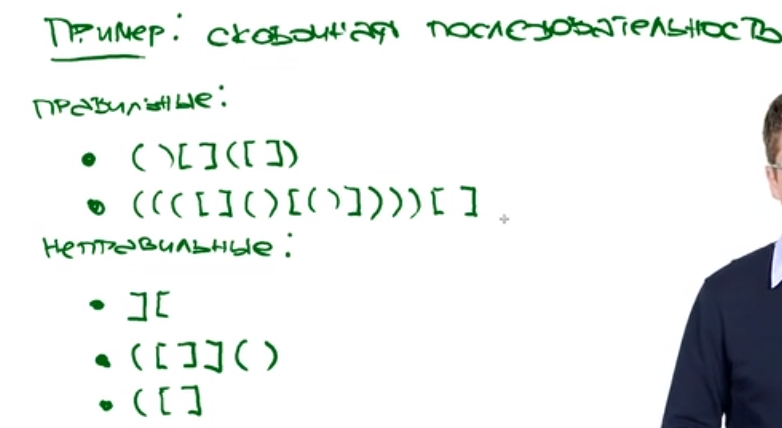 Пример: скобочная последовательность
правильные:
• ()[]([])
• ((([]()[()])))[]
неправильные:
• ][
• ([]]()
• ([]